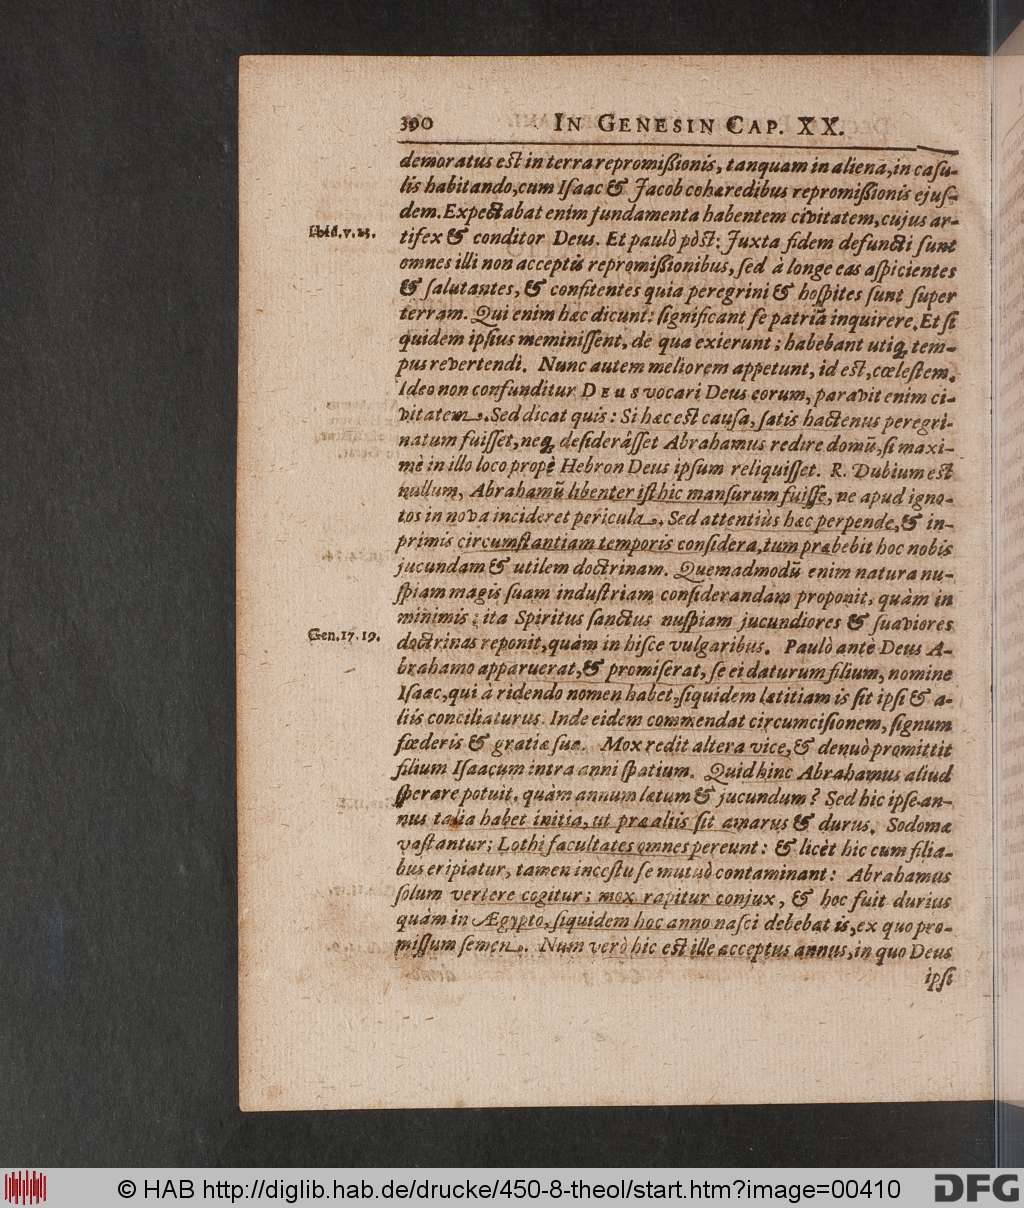 390 IN GENESIN CAP. XX.
demoratus est in terra repromißionis, tanquam in aliena, in casu-
lis habitando, cum Isaac & Jacob cohæredibus repromißionis ejus-
dem. Expectabat enim fundamenta habentem civitatem, cujus ar-
Ibid. v. 13.
tifex & conditor Deus. Et paulò pòst: Juxta fidem defuncti sunt
omnes illi non acceptis repromißionibus, sed à longe eas aspicientes
& salutantes, & confitentes quia peregrini & hospites sunt super
terram. Qui enim hæc dicunt: significant se patriã inquirere. Et si
quidem ipsius meminissent, de qua exierunt; habebant utiq; tem-
pus revertendi. Nunc autem meliorem appetunt, id est, cœlestem.
Ideo non confunditur DEUS vocari Deus eorum, paravit enim ci-
vitatem. Sed dicat quis: Si hæc est causa, satis hactenus peregri-
natum fuisset, neq; desiderâsset Abrahamus redire domũ, si maxi-
mè in illo loco propè Hebron Deus ipsum reliquisset. R. Dubium est
nullum, Abrahamũ libenter isthic mansurum fuisse, ne apud igno-
tos in nova incideret pericula. Sed attentiùs hæc perpende, & in-
primis circumstantiam temporis considera, tum præbebit hoc nobis
jucundam & utilem doctrinam. Quemadmodũ enim natura nu-
spiam magis suam industriam considerandam proponit, quàm in
minimis: ita Spiritus sanctus nuspiam jucundiores & suaviores
Gen. 17. 19.
doctrinas reponit, quàm in hisce vulgaribus. Paulò antè Deus A-
brahamo apparuerat, & promiserat, se ei daturum filium, nomine
Isaac, qui à ridendo nomen habet, siquidem lætitiam is sit ipsi & a-
liis conciliaturus. Inde eidem commendat circumcisionem, signum
fœderis & gratiæ suæ. Mox redit altera vice, & denuò promittit
filium Isaacum intra anni spatium. Quid hinc Abrahamus aliud
sperare potuit, quàm annum lætum & jucundum? Sed hic ipse an-
nus talia habet initia, ut præ aliis sit amarus & durus. Sodomæ
vastantur; Lothi facultates omnes pereunt: & licèt hic cum filia-
bus eripiatur, tamen incestu se mutuò contaminant: Abrahamus
solum vertere cogitur; mox rapitur conjux, & hoc fuit durius
quàm in Ægypto, siquidem hoc anno nasci debebat is, ex quo pro-
missum semen. Num verò hic est ille acceptus annus, in quo Deus
ipsi
© HAB http://diglib.hab.de/drucke/450-8-theol/start.htm?image=00410
DFG